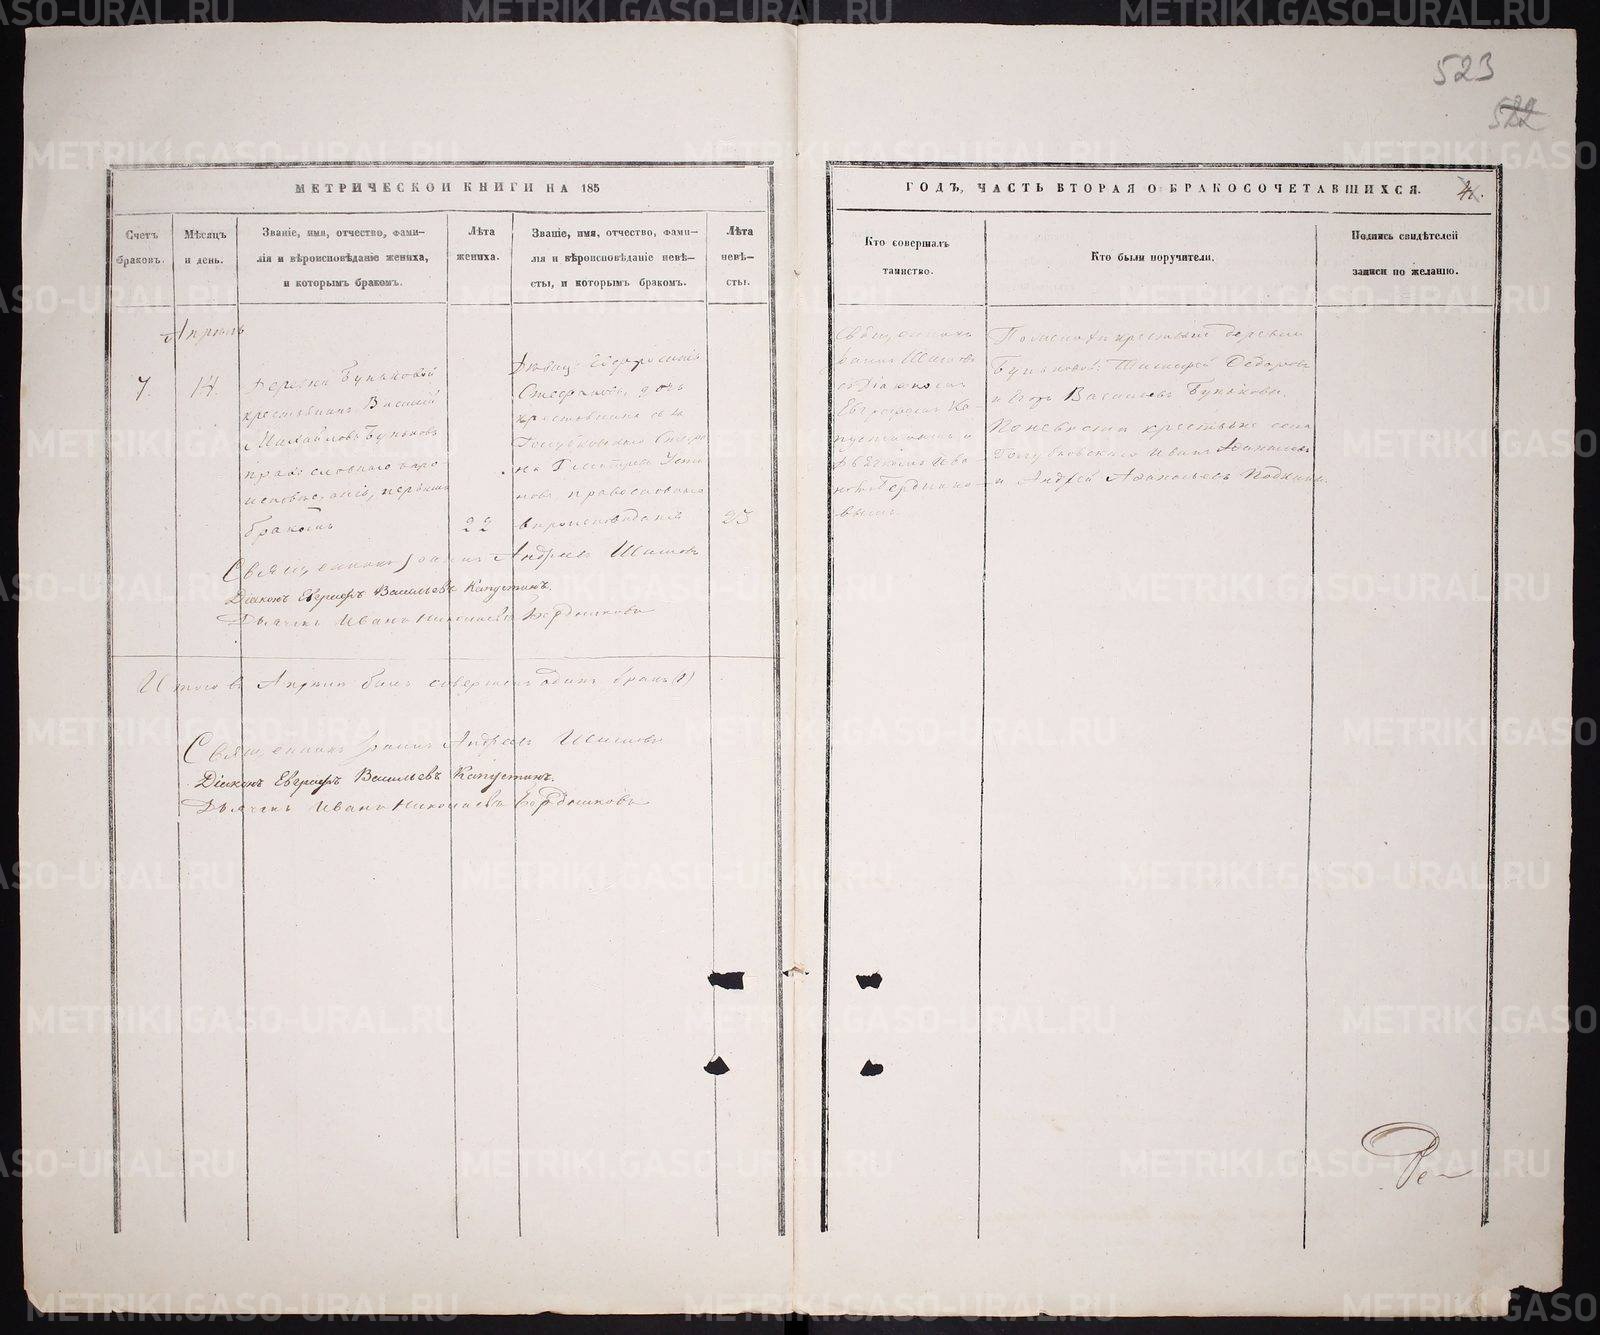 523
522
МЕТРИЧЕСКОЙ КНИГИ НА 185
ГОДЪ, ЧАСТЬ ВТОРАЯ О БРАКОСОЧЕТАВШИХСЯ.
Счетъ браковъ.
Мѣсяцъ и день.
Званіе, имя, отчество, фами-
лія и вѣроисповѣданіе жениха,
и которымъ бракомъ.
Лѣта
жениха.
Званіе, имя, отчество, фами-
лія и вѣроисповѣданіе невѣ-
сты, и которымъ бракомъ.
Лѣта
невѣ-
сты.
Кто совершалъ
таинство.
Кто были поручители.
Подпись свидѣтелей
записи по желанію.
Апрель
7.
14.
Деревни Буньковой
крестьянинъ Василій
Михайловъ Буньковъ
православнаго веро
исповеданія, первымъ
бракомъ
22
Девица Евфросинія
Стефанова, дочь
крестьянина села
Голубковскаго
православнаго
вероисповеданія
25
Священникъ
Іоаннъ Шишовъ
съ Діакономъ
Евграфомъ Ка-
пустинымъ и
Дьячкомъ Ива
номъ Бердынико-
вымъ.
По женихе крестьяне деревни
Буньковой: Тимофей Федоровъ
и Егоръ Васильевъ Буньковы.
По невесте крестьяне села
Голубковскаго Иванъ
и Андрей Афанасьевъ
Священникъ Іоаннъ Андреевъ Шишовъ
Діаконъ Евграфъ Васильевъ Капустинъ.
Дьячекъ Иванъ Николаевъ Бердыниковъ
Итого въ Апреле былъ совершенъ одинъ бракъ (1)
Священникъ Іоаннъ Андреевъ Шишовъ
Діаконъ Евграфъ Васильевъ Капустинъ.
Дьячекъ Иванъ Николаевъ Бердыниковъ
Ре
METRIKI.GASO-URAL.RU